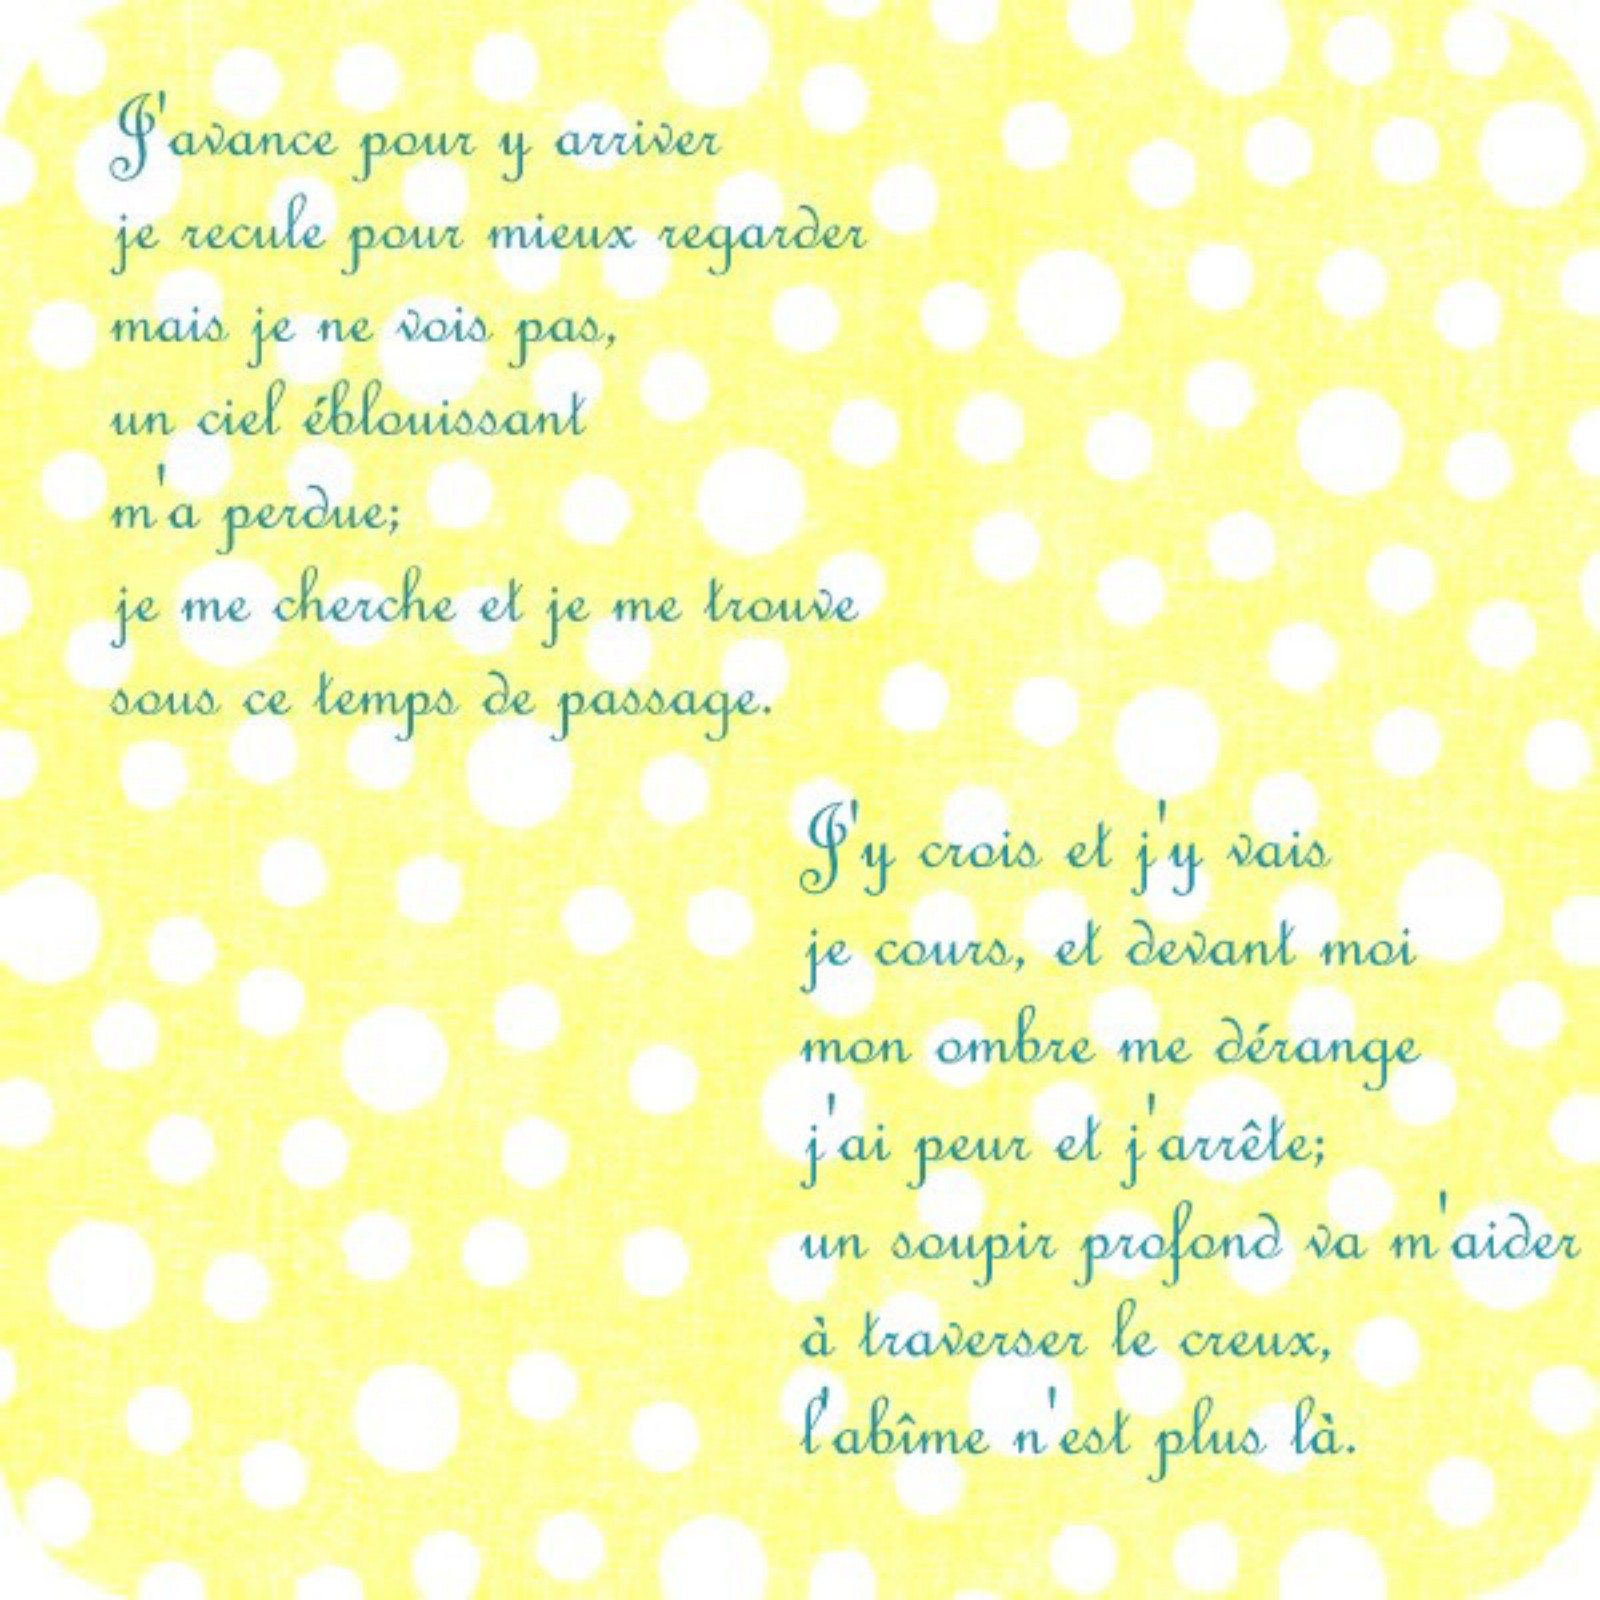 J'avance pour y arriver
je recule pour mieux regarder
mais je ne vois pas,
un ciel éblouissant
m'a perdue;
je me cherche et je me trouve
sous ce temps de passage.
J'y crois et j'y vais
je cours, et devant moi
mon ombre me dérange
j'ai peur et j'arrête;
un soupir profond va m'aider
à traverser le creux,
l'abîme n'est plus là.